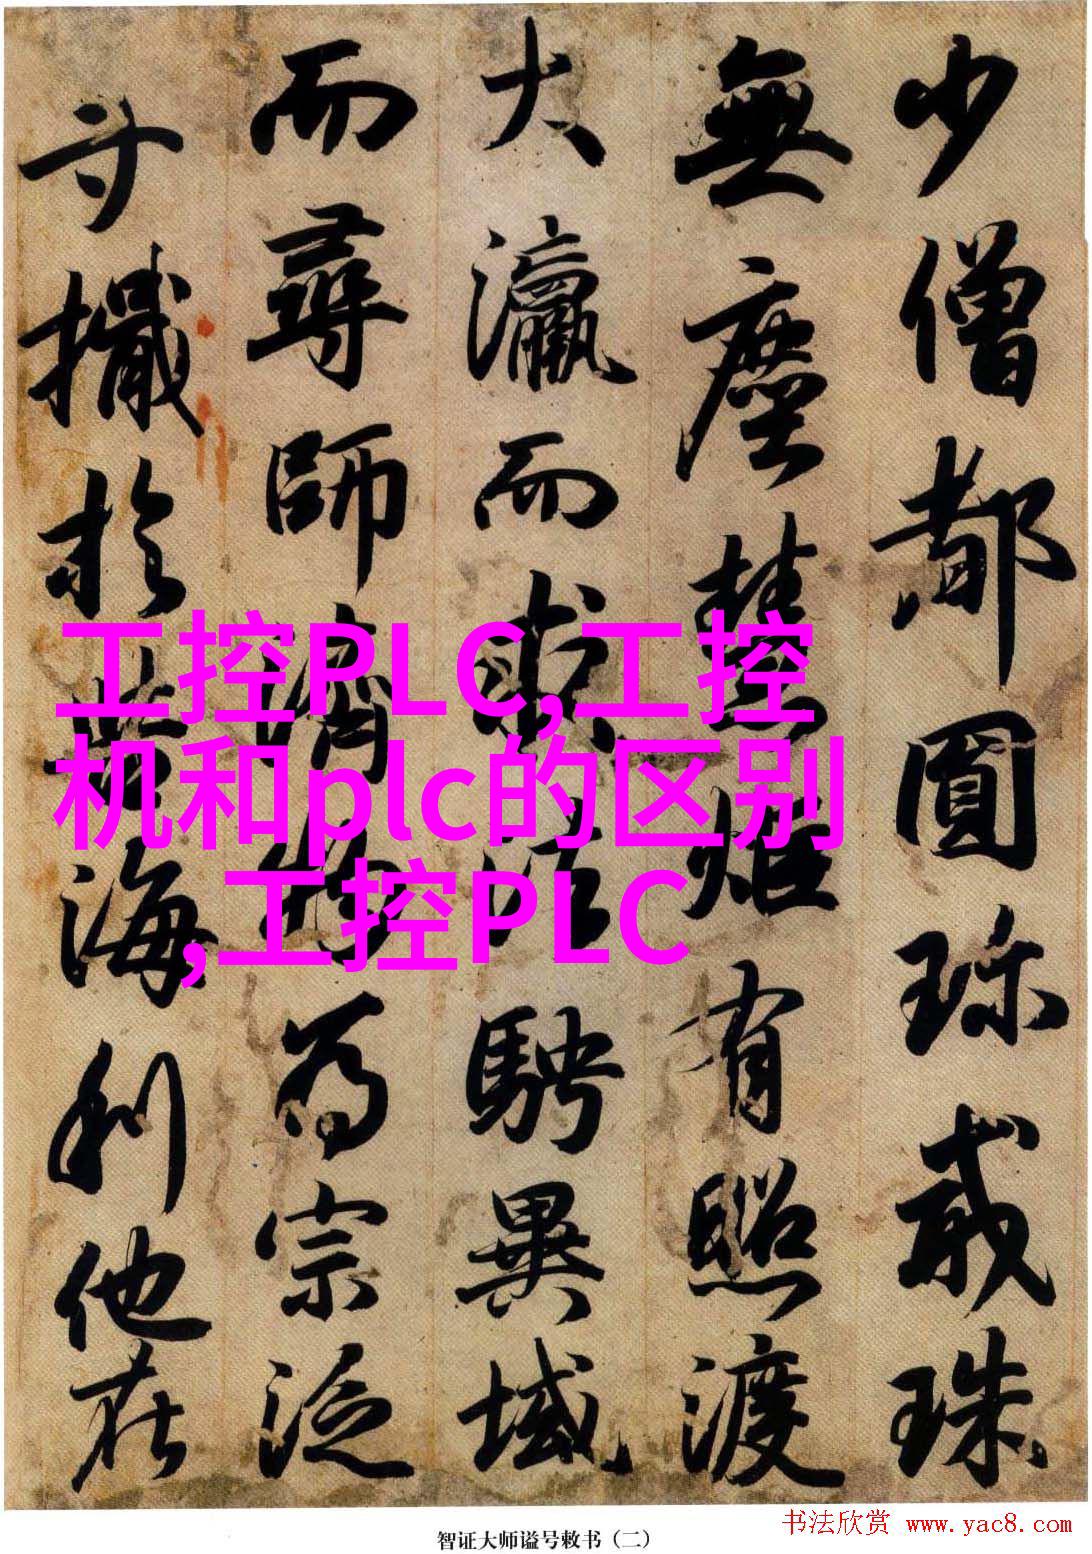 少僧都圓珍戒珠
無塵慧炬有照渡
大瀛而求法騁異域
而尋師濟物為宗泛
寸檝於苦海利他在
工控PLC,工控
机和plc的区别
,工控PLC
智证大师谥号敕书（二）
书法欣赏 www.yac8.com